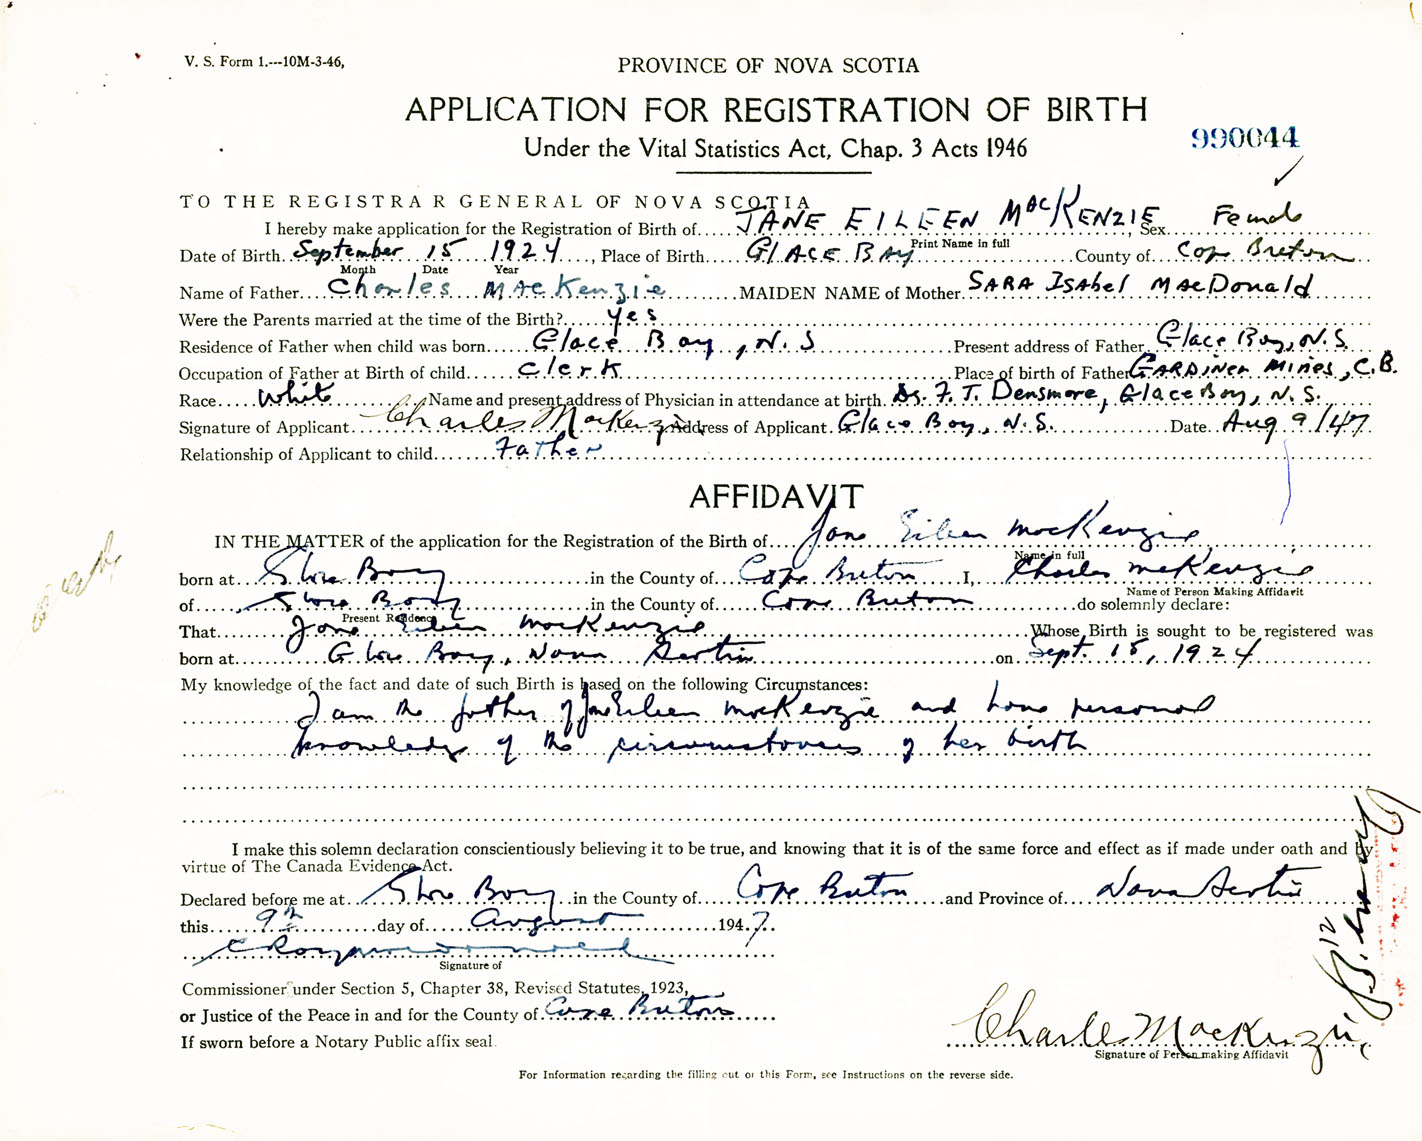 V. S. Form 1.---10M-3-46,
PROVINCE OF NOVA SCOTIA
APPLICATION FOR REGISTRATION OF BIRTH
Under the Vital Statistics Act, Chap. 3 Acts 1946
990044
TO THE REGISTRAR GENERAL OF NOVA SCOTIA
I hereby make application for the Registration of Birth of JANE EILEEN MacKENZIE Sex Female
Print Name in full
Date of Birth September 15 1924, Place of Birth GLACE BAy County of Cape Breton
Month Date Year
Name of Father Charles MacKenzie MAIDEN NAME of Mother SARA ISAbel MacDonald
Were the Parents married at the time of the Birth? yes
Residence of Father when child was born Glace Bay, N.S Present address of Father Glace Bay, N.S.
Occupation of Father at Birth of child Clerk Place of birth of Father GARDINER MINES, C.B.
Race White Name and present address of Physician in attendance at birth Dr. F. T. Densmore, Glace Bay, N.S.
Signature of Applicant Charles MacKenzie Address of Applicant Glace Bay, N.S. Date Aug 9/47
Relationship of Applicant to child Father
AFFIDAVIT
IN THE MATTER of the application for the Registration of the Birth of Jane Eileen MacKenzie
Name in full
born at Glace Bay in the County of Cape Breton I, Charles MacKenzie
Name of Person Making Affidavit
of Glace Bay in the County of Cape Breton do solemnly declare:
Present Residence
That Jane Eileen MacKenzie Whose Birth is sought to be registered was
born at Glace Bay, Nova Scotia on Sept. 15, 1924
My knowledge of the fact and date of such Birth is based on the following Circumstances:
I am the father of Jane Eileen MacKenzie and have personal
knowledge of the circumstances of her birth
I make this solemn declaration conscientiously believing it to be true, and knowing that it is of the same force and effect as if made under oath and by
virtue of The Canada Evidence Act.
Declared before me at Glace Bay in the County of Cape Breton and Province of Nova Scotia
this 9th day of August 1947
Signature of
Commissioner under Section 5, Chapter 38, Revised Statutes, 1923,
or Justice of the Peace in and for the County of Cape Breton
If sworn before a Notary Public affix seal
Charles MacKenzie
Signature of Person making Affidavit
For Information regarding the filling out of this Form, see Instructions on the reverse side.